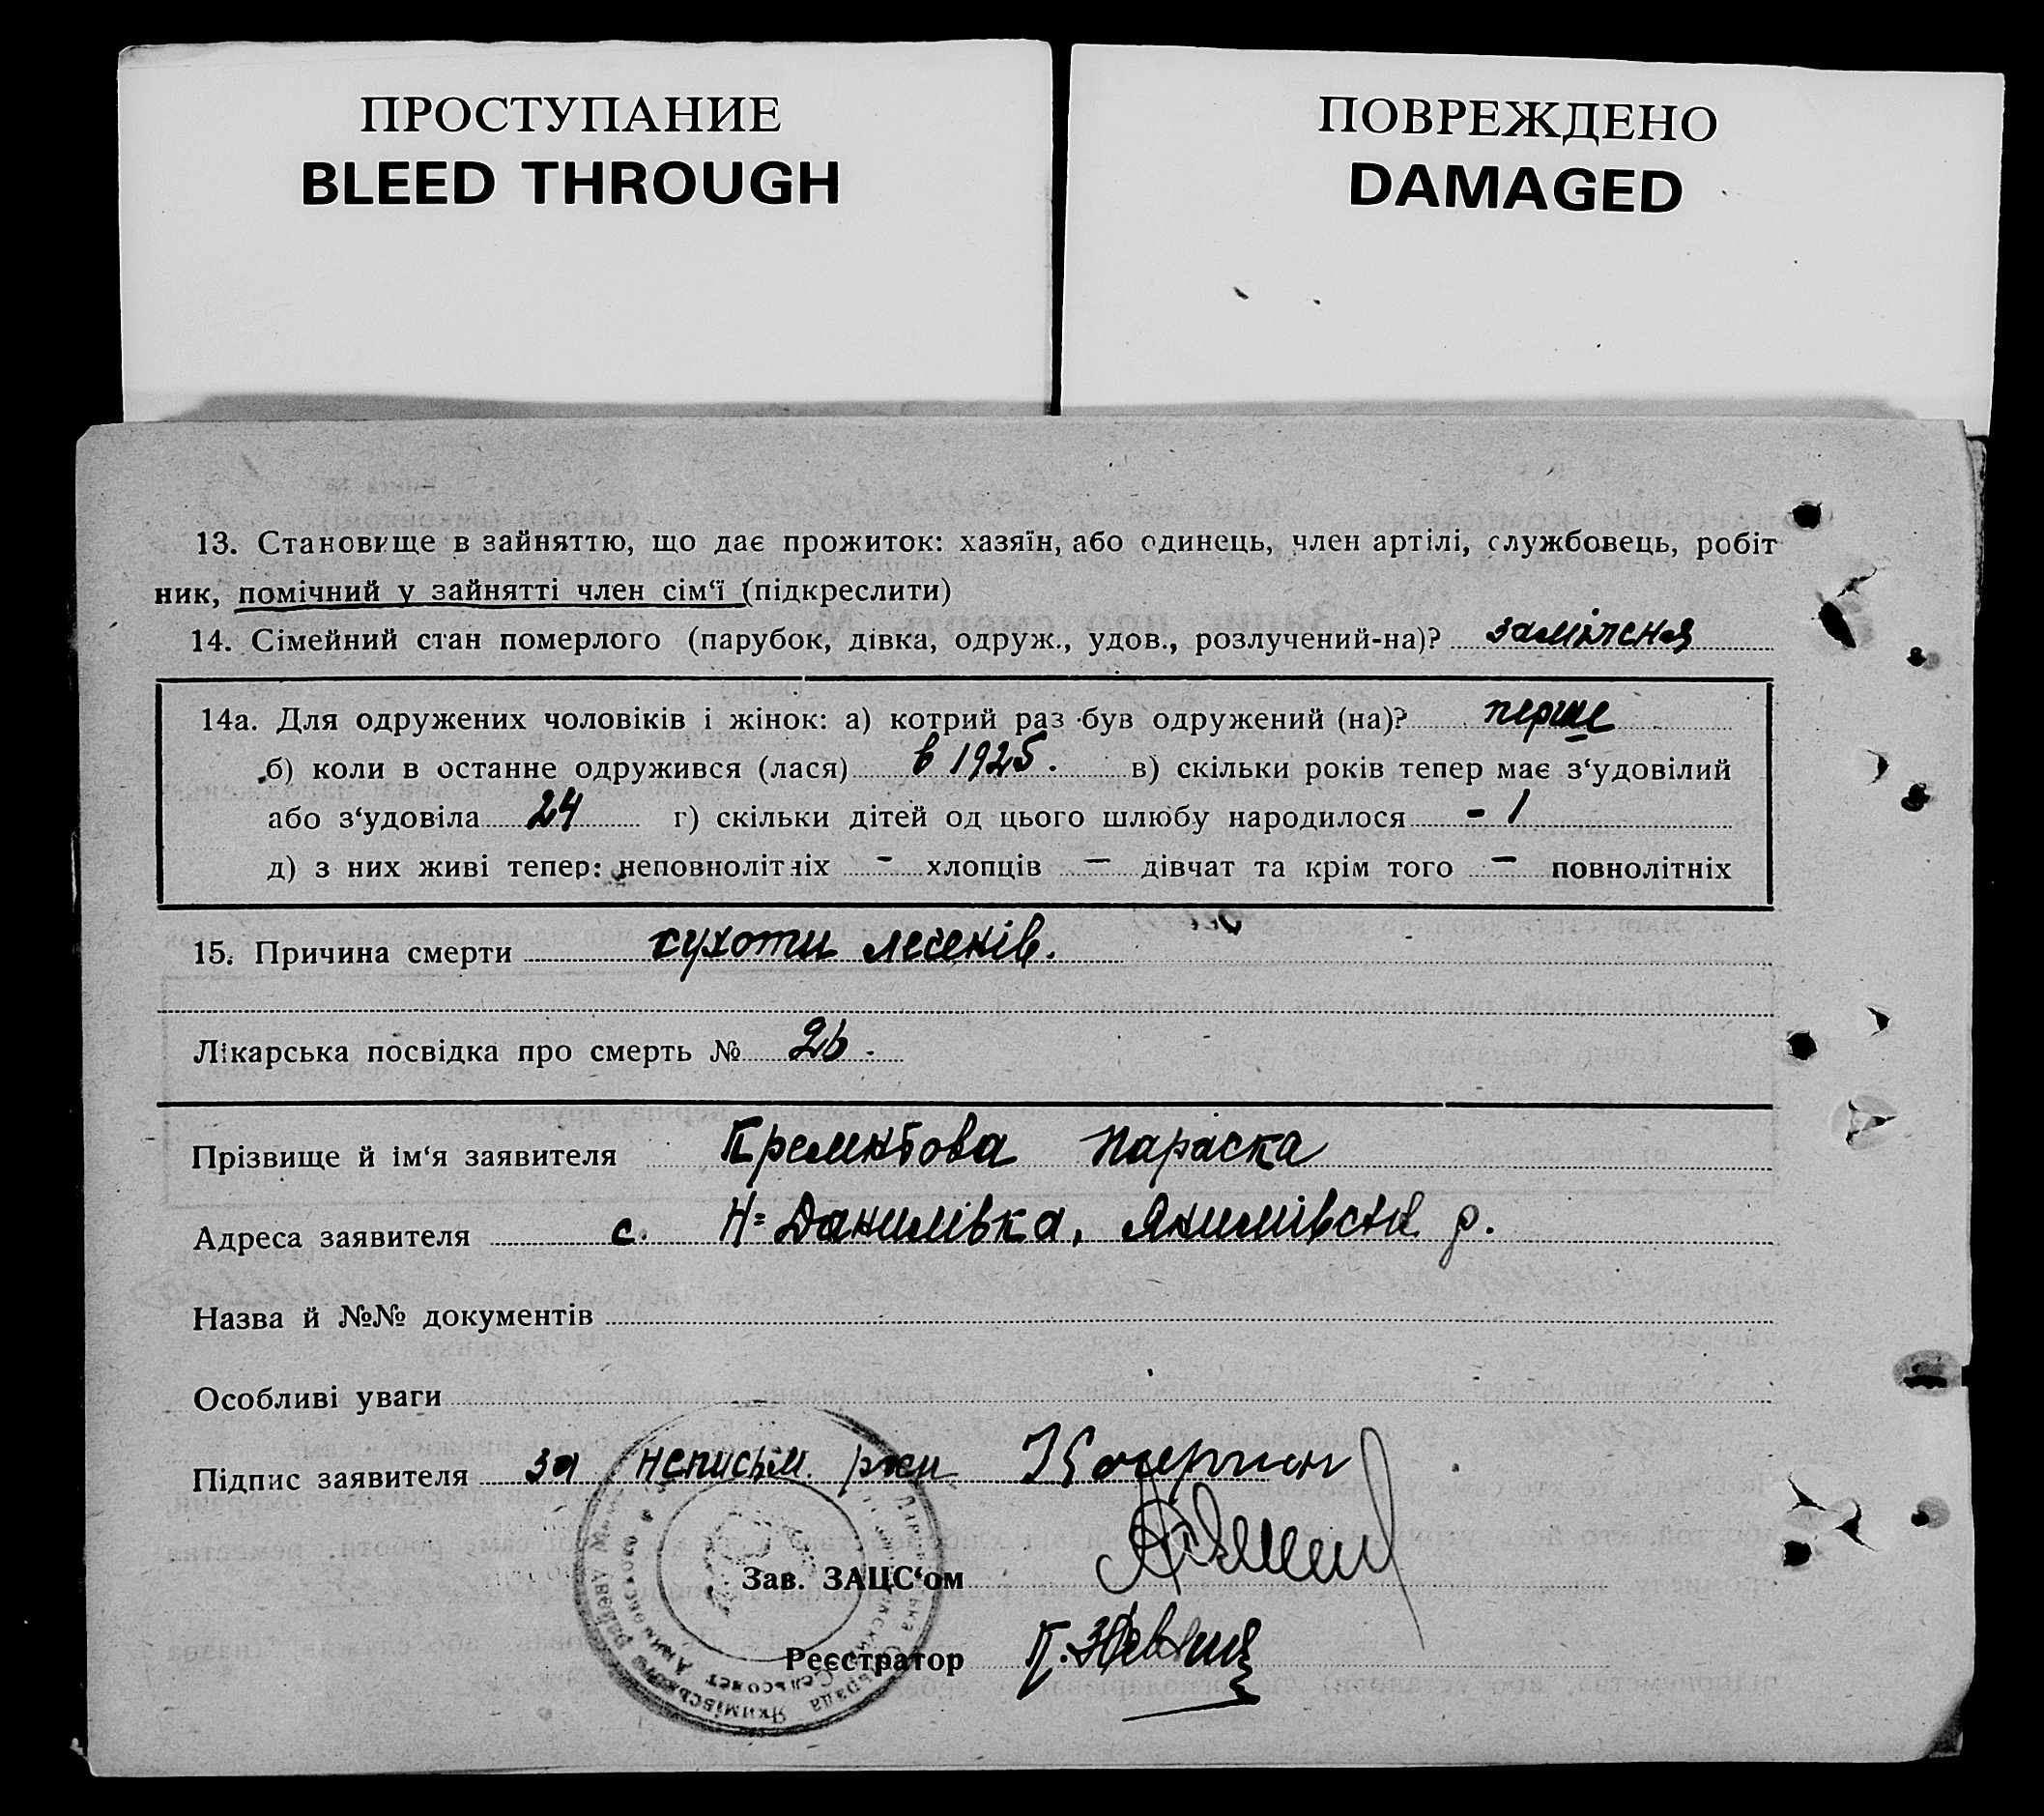 ПРОСТУПАНИЕ
BLEED THROUGH
ПОВРЕЖДЕНО
DAMAGED
13. Становище в зайняттю, що дає прожиток: хазяїн, або одинець, член артілі, службовець, робіт
ник, помічний у зайнятті член сім‘ї (підкреслити)
14. Сімейний стан померлого (парубок, дівка, одруж., удов., розлучений-на)? заміжня
14а. Для одружених чоловіків і жінок: а) котрий раз був одружений (на)? перше
б) коли в останне одружився (лася) в 1925. в) скільки років тепер має з‘удовілий
або з‘удовіла 24 г) скільки дітей од цього шлюбу народилося - 1
д) з них живі тепер: неповнолітніх - хлопців — дівчат та крім того — повнолітніх
15. Причина смерти сухоти легенів.
Лікарська посвідка про смерть № 26.
Прізвище й ім‘я заявителя Параска
Адреса заявителя с. Н=Данилівка, р.
Назва й №№ документів
Особливі уваги
Підпис заявителя за неписьм.
Зав. ЗАЦС‘ом
Реєстратор